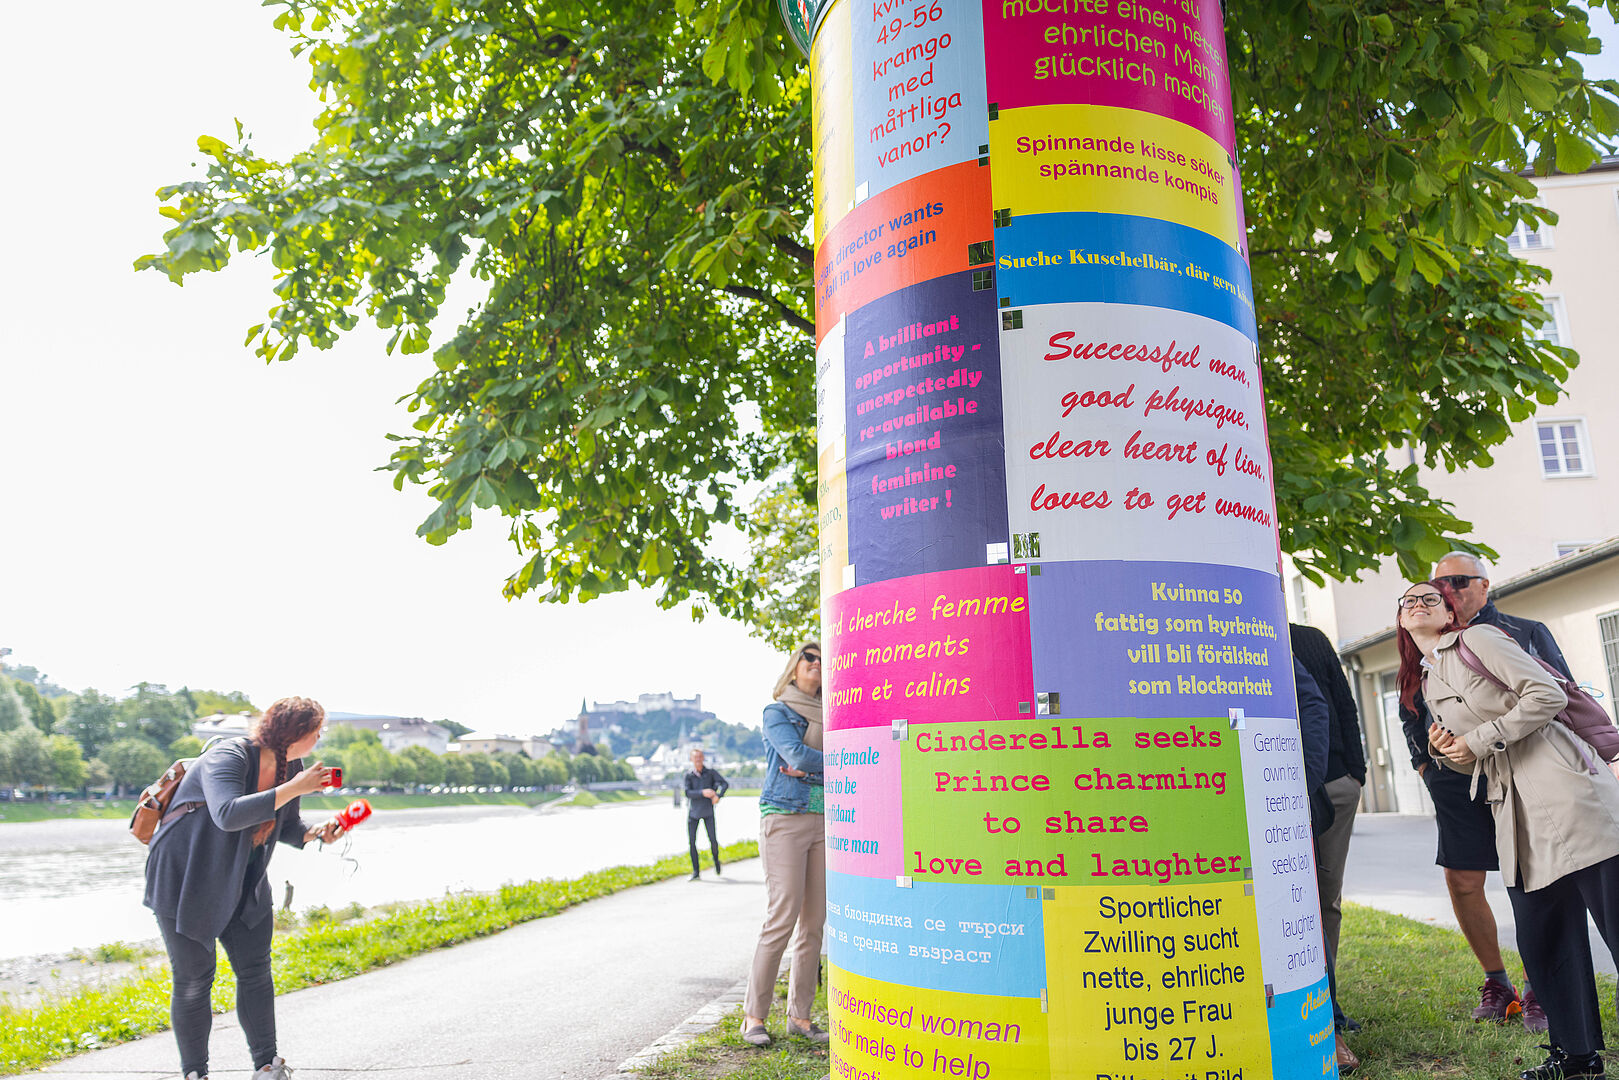 49-56
kramgo
med
måttliga
vanor?
möchte einen netten
ehrlichen Mann
glücklich machen
Spinnande kisse söker
spännande kompis
director wants
fall in love again
Suche Kuschelbär, där gern
A brilliant
opportunity -
unexpectedly
re-available
blond
feminine
writer !
Successful man,
good physique,
clear heart of lion,
loves to get woman
cherche femme
pour moments
et calins
Kvinna 50
fattig som kyrkråtta,
vill bli förälskad
som klockarkatt
female
to be
mature man
Cinderella seeks
Prince charming
to share
love and laughter
Gentleman,
own hair,
teeth and
other vital
seeks lady
for
laughter
and fun
блондинка се търси
на средна възраст
Sportlicher
Zwilling sucht
nette, ehrliche
junge Frau
bis 27 J.
modernised woman
for male to help